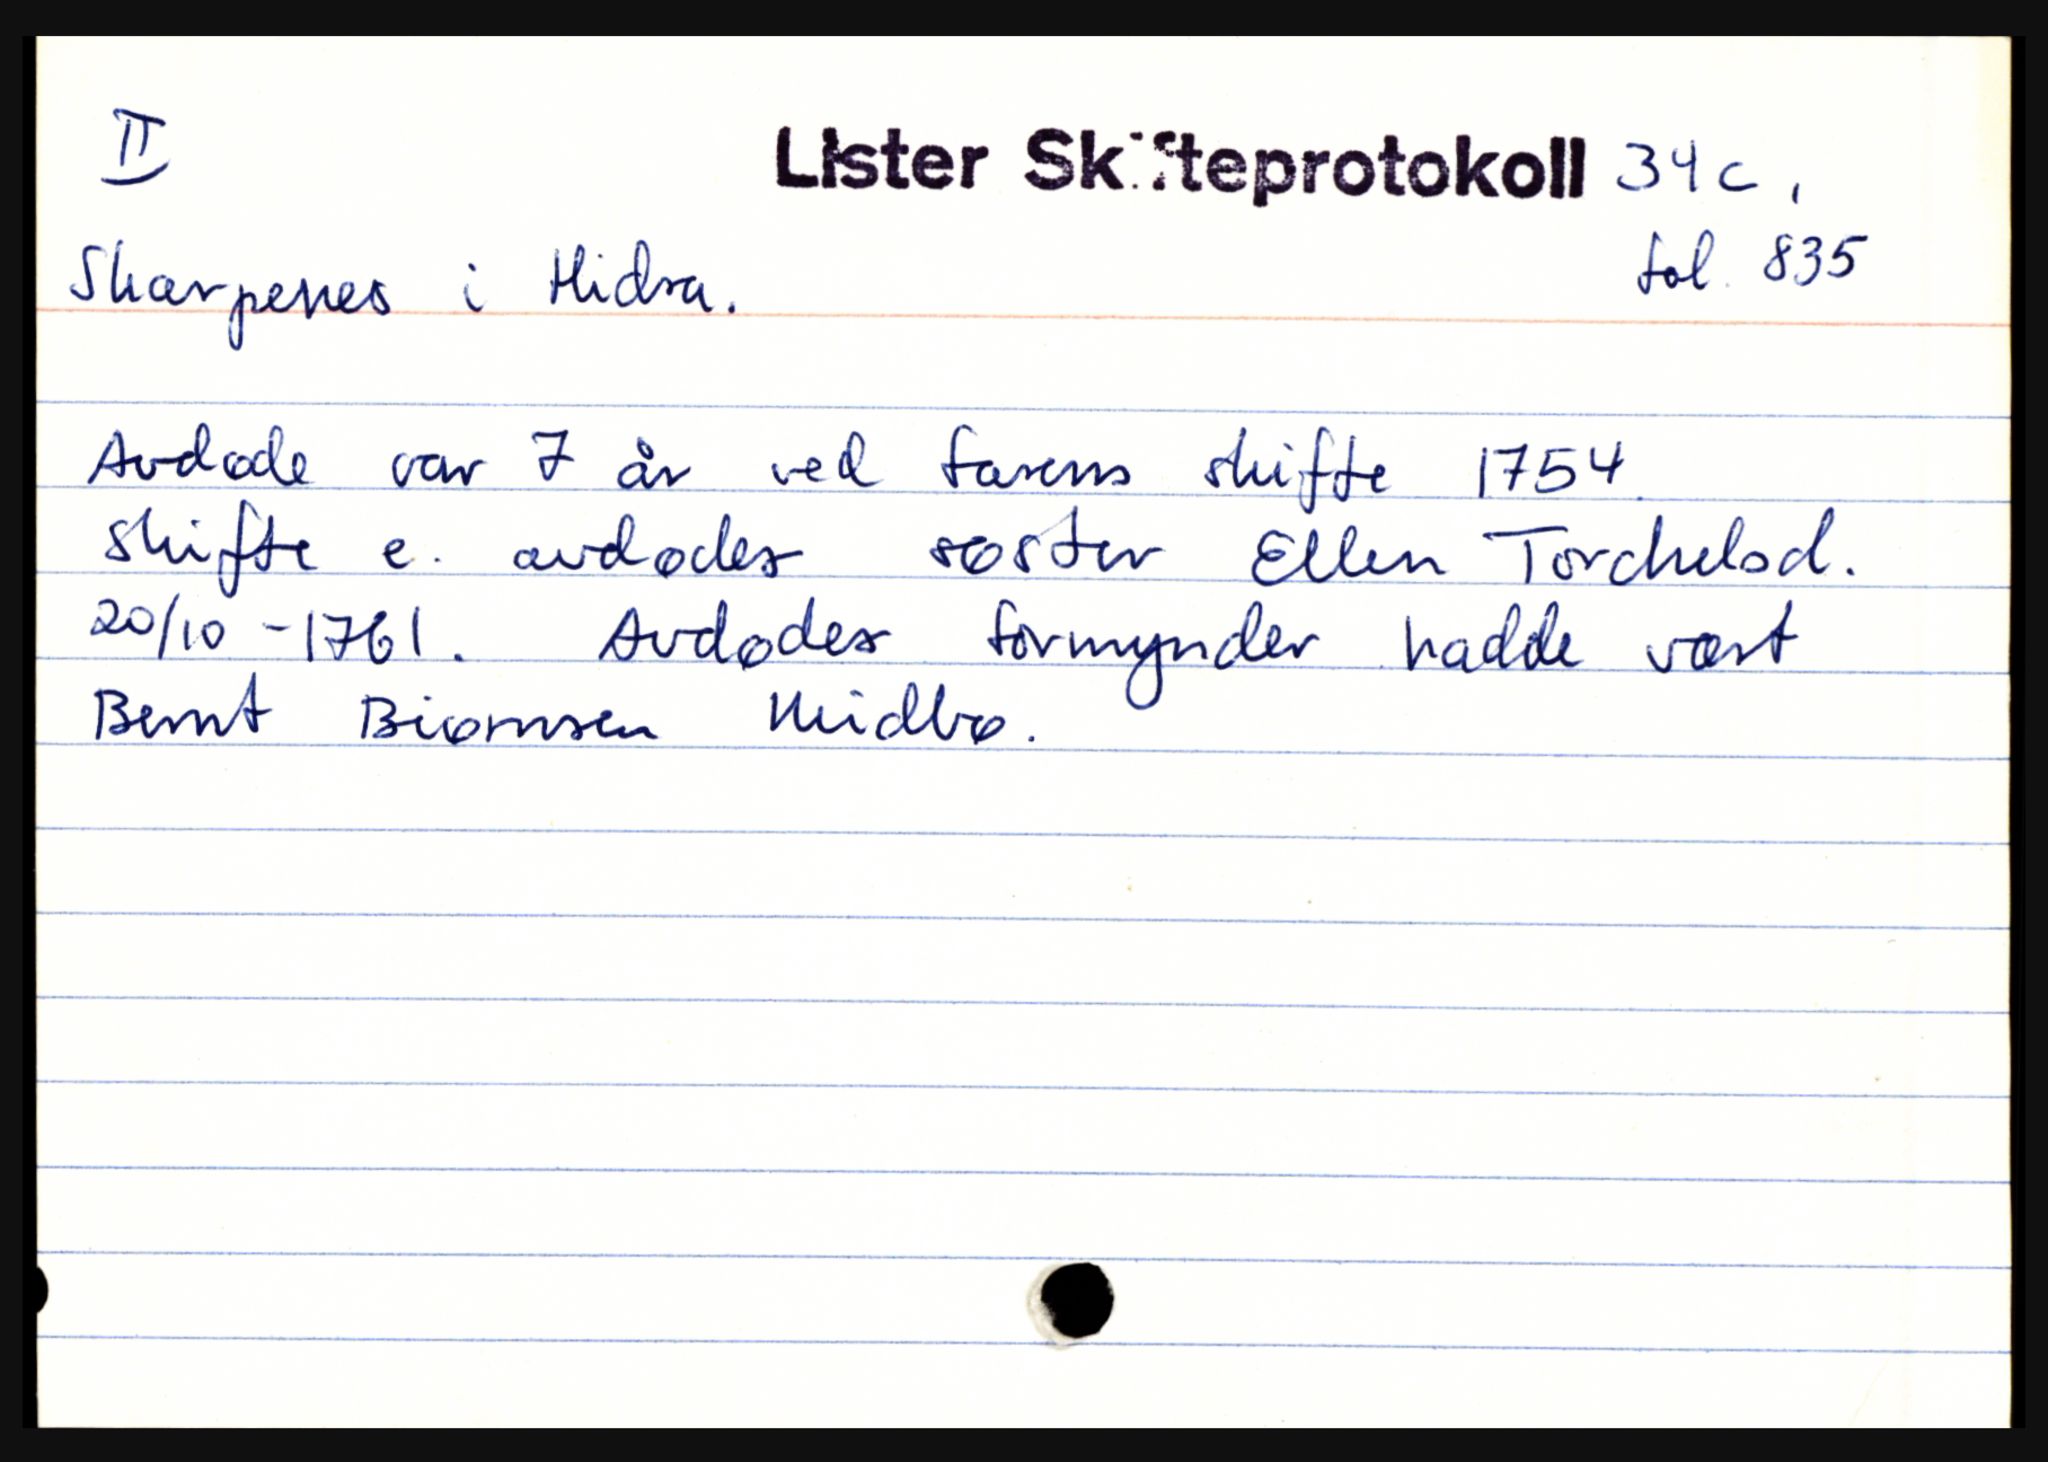 II
Lister Skifteprotokoll 34c,
fol. 835
Skarpenes i Hidra.
Avdøde var 7 år ved farens skifte 1754.
Skifte e. avdødes søster Ellen Torchelsd.
20/10 - 1761. Avdødes formynder hadde vært
Bernt Biørnsen Midbø.